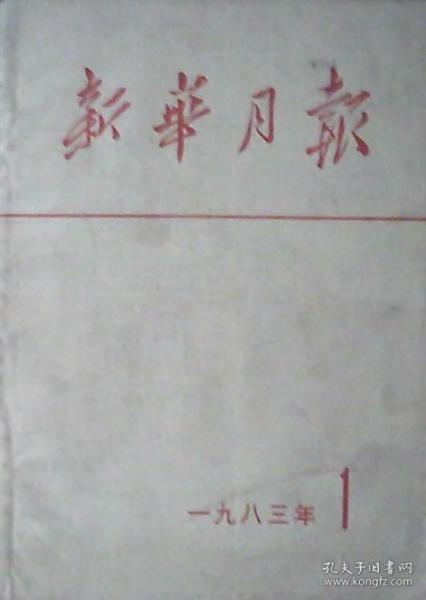 新華月報
一九八三年 1
孔夫子旧书网
www.kongfz.com